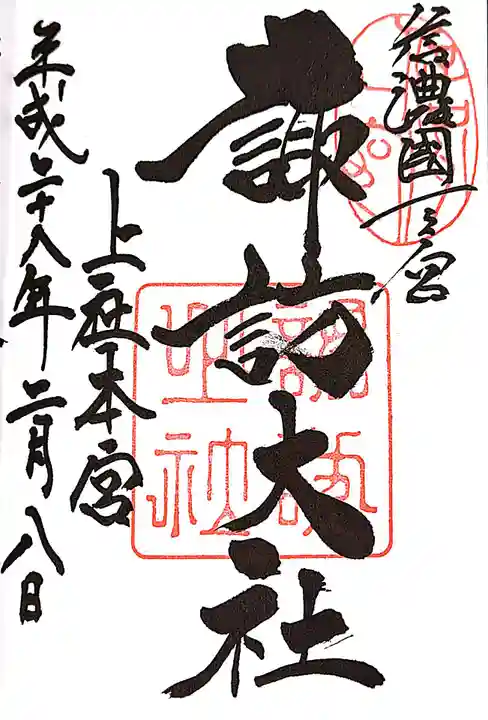 信濃國一之宮
諏訪大社
上社本宮
平成二十八年二月八日
諏訪
大社